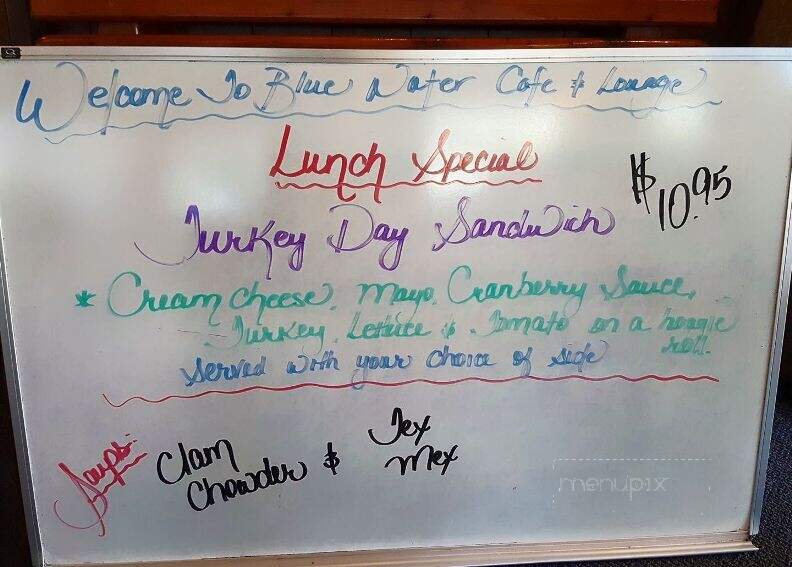 Welcome To Blue Water Cafe & Lounge
Lunch Special
$10.95
Turkey Day Sandwich
* Cream cheese, mayo, Cranberry Sauce,
Turkey, Lettuce & Tomato on a hoagie
roll.
Served with your choice of side
Soups:
Clam
Chowder &
Tex
Mex
menupix